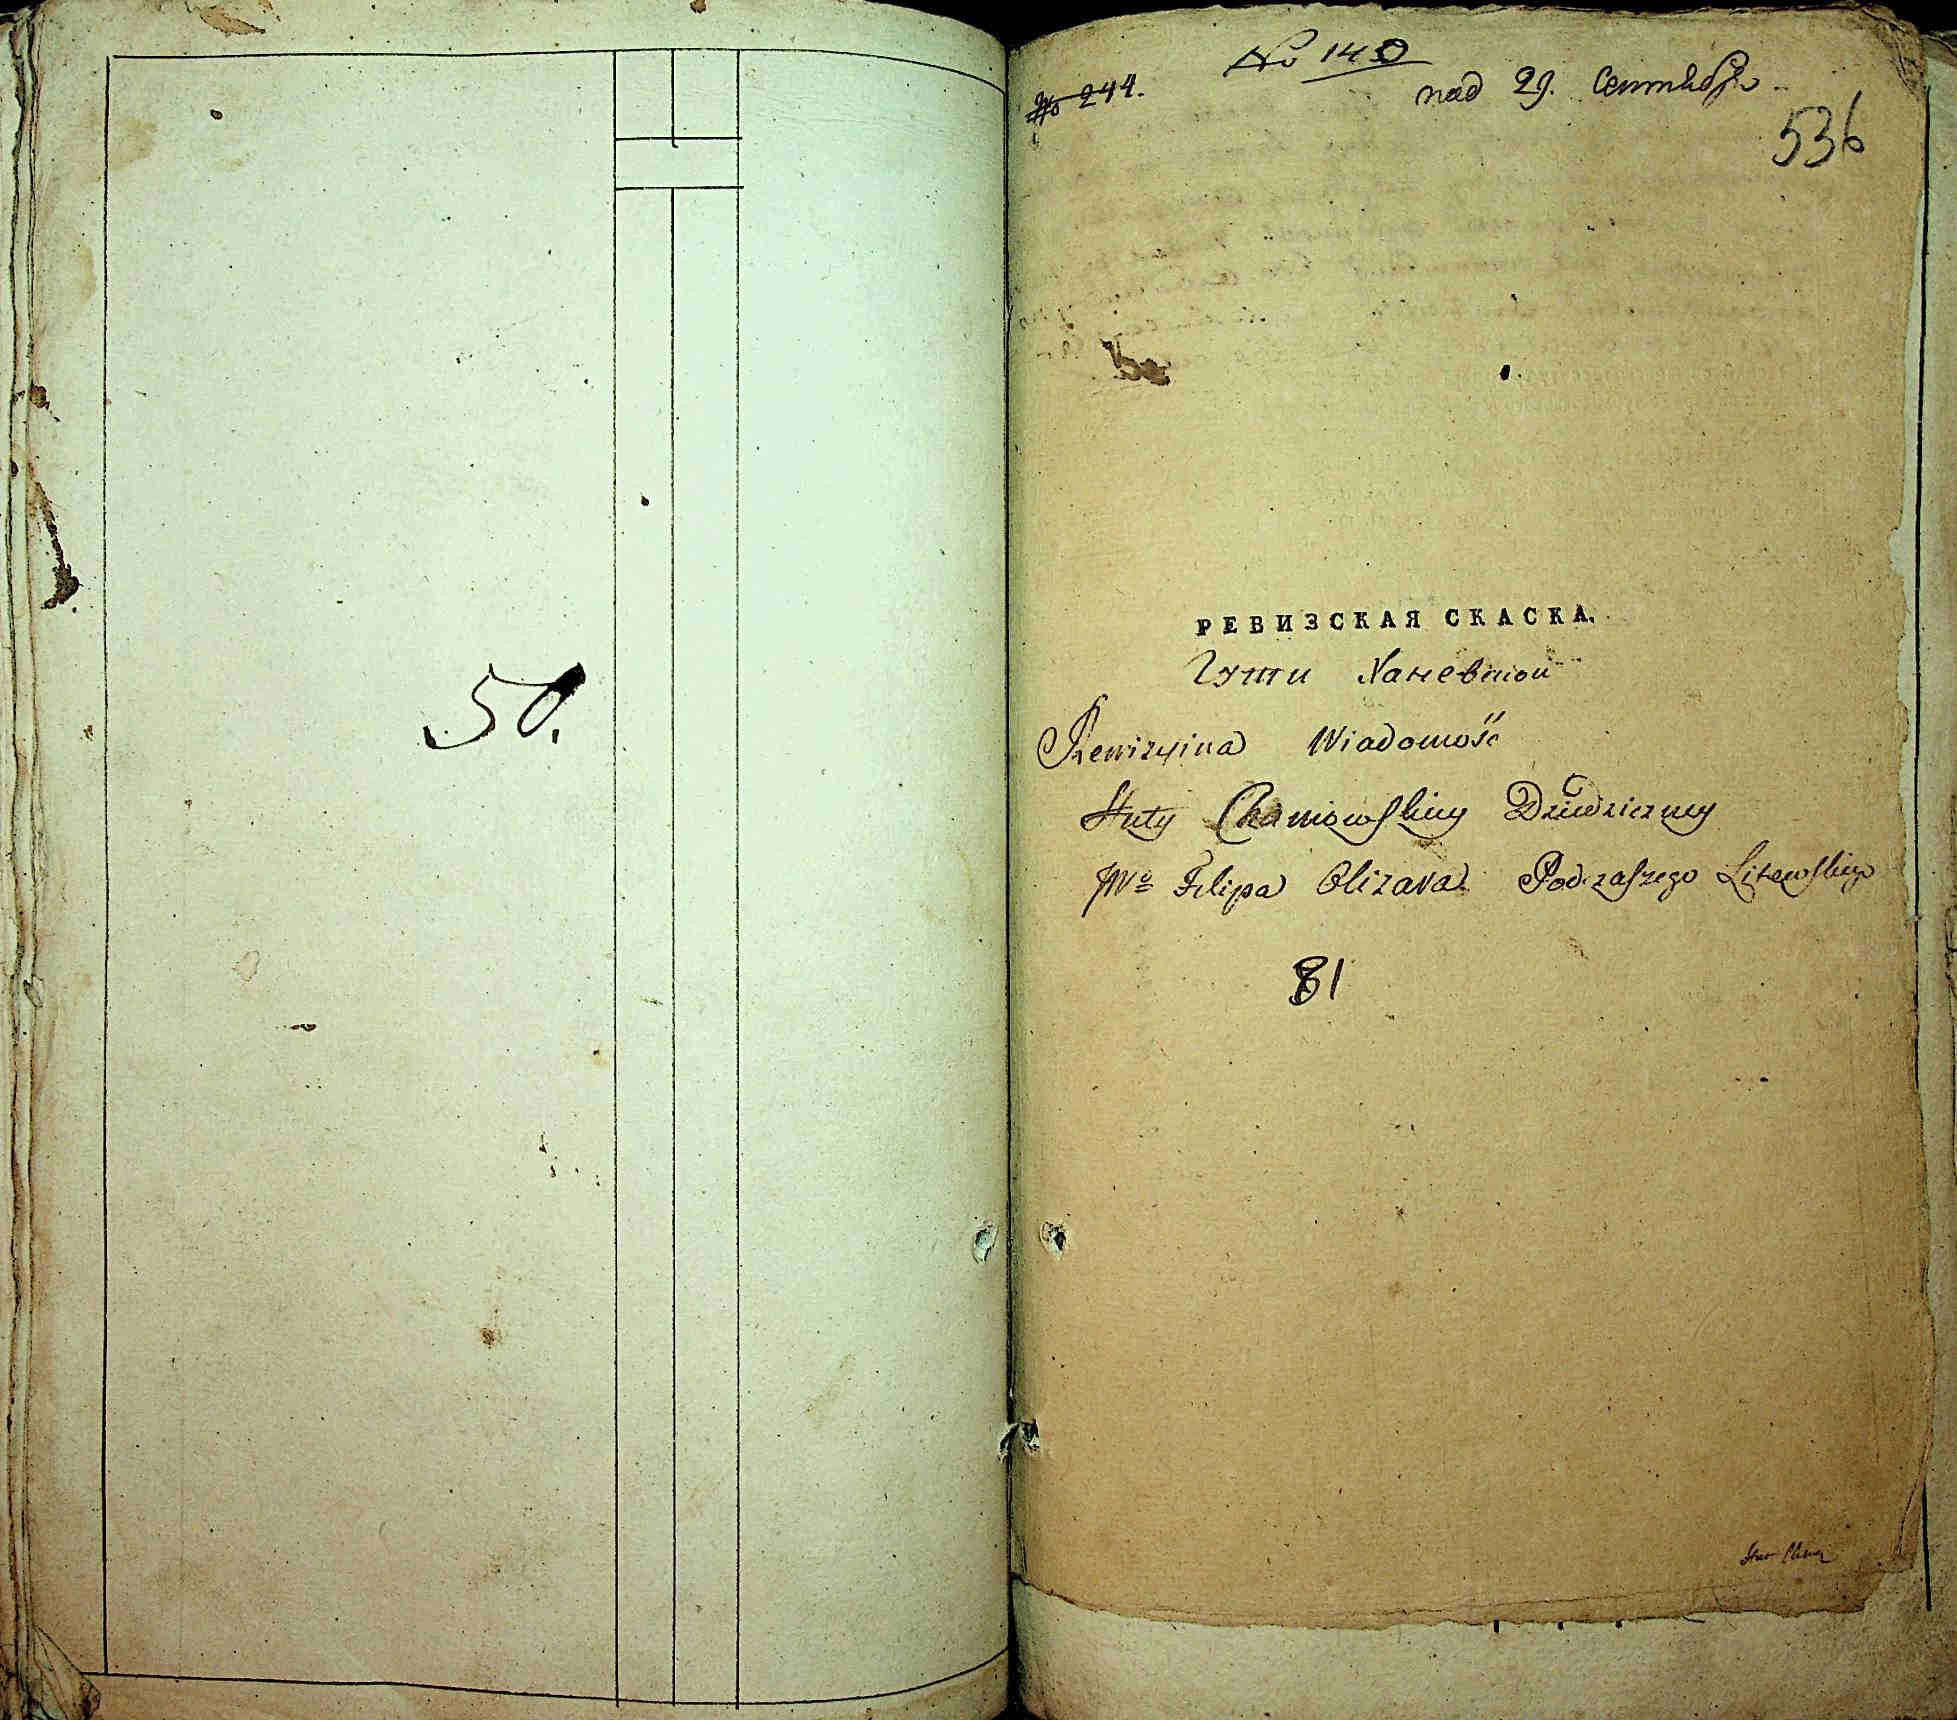 50.
№ 140
№ 244.
под 29. Сентября
536
РЕВИЗСКАЯ СКАСКА.
Гути Ханевской
Rewizyina Wiadomość
Huty Chaniowskiey Dziedziczney
JWo Filipa Olizara Podczaszego Litewskiego
81